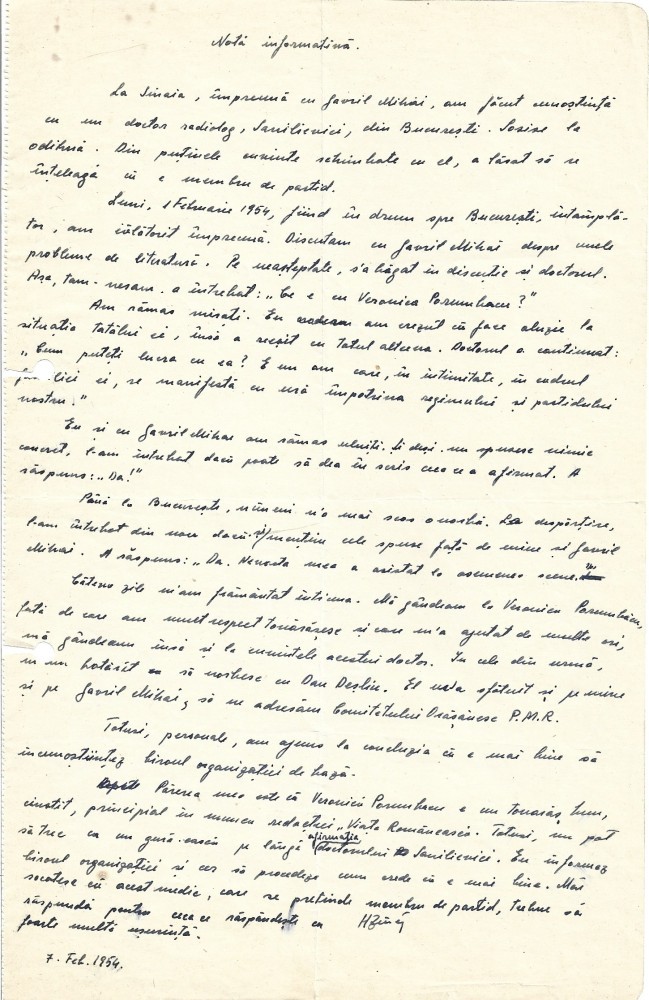 Notă informativă.
La Sinaia, împreună cu Gavril Mihai, am făcut cunoștință
cu un doctor radiolog, Sanilievici, din București. Sosise la
odihnă. Din puținele cuvinte schimbate cu el, a lăsat să se
înțeleagă că e membru de partid.
Luni, 1 Februarie 1954, fiind în drum spre București, întâmplă-
tor, am călătorit împreună. Discutam cu Gavril Mihai despre unele
probleme de literatură. Pe neașteptate, s'a băgat în discuție și doctorul.
Așa, tam-nesam a întrebat: „Ce e cu Veronica Porumbacu?"
Am rămas mirați. Eu am crezut că face aluzie la
situația tatălui ei, însă a reeșit cu totul altceva. Doctorul a continuat:
„Cum puteți lucra cu ea? E un om care, în intimitate, în cadrul
ei, se manifestă cu ură împotriva regimului și partidului
nostru."
Eu și cu Gavril Mihai am rămas uluiți. Și deși nu spusese nimic
concret, l-am întrebat dacă poate să dea în scris ceea ce a afirmat. A
răspuns: „Da!"
Până la București, nimeni n'a mai scos o vorbă. La despărțire,
l-am întrebat din nou dacă-și menține cele spuse față de mine și Gavril
Mihai. A răspuns: „Da. Nevasta mea a asistat la asemenea scene."
Câteva zile m'am frământat întruna. Mă gândeam la Veronica Porumbacu,
față de care am mult respect tovărășesc și care m'a ajutat de multe ori,
mă gândeam însă și la cuvintele acestui doctor. În cele din urmă,
m'am hotărît să vorbesc cu Dan Deșliu. El m'a sfătuit și pe mine
și pe Gavril Mihai, să ne adresăm Comitetului Orășănesc P.M.R.
Totuși, personal, am ajuns la concluzia că e mai bine să
încunoștiințez biroul organizației de bază.
Părerea mea este că Veronica Porumbacu e un tovarăș bun,
cinstit, principial în munca redacției „Viața Românească". Totuși, nu pot
să trec ca un gură-cască pe lângă afirmația doctorului Sanilievici. Eu informez
biroul organizației și cer să procedeze cum crede că e mai bine. Mai
socotesc că acest medic, care se pretinde membru de partid, trebue să
răspundă pentru ceea ce răspândește cu
foarte multă ușurință.
7. Feb. 1954.